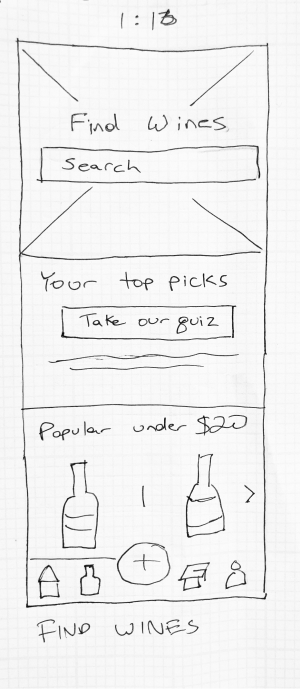 Find Wines
Search
Your top picks
Take our quiz
Popular under $20
FIND WINES